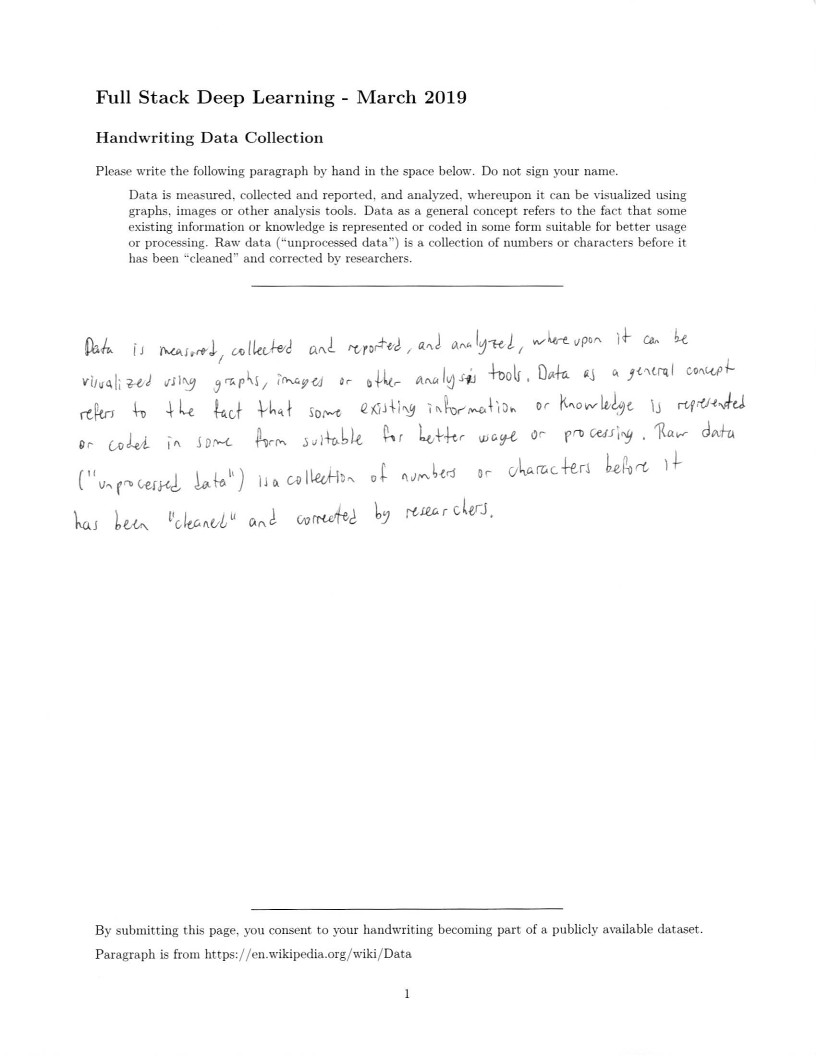 Full Stack Deep Learning - March 2019
Handwriting Data Collection
Please write the following paragraph by hand in the space below. Do not sign your name.
Data is measured, collected and reported, and analyzed, whereupon it can be visualized using
graphs, images or other analysis tools. Data as a general concept refers to the fact that some
existing information or knowledge is represented or coded in some form suitable for better usage
or processing. Raw data (“unprocessed data”) is a collection of numbers or characters before it
has been “cleaned” and corrected by researchers.
Data is measured, collected and reported, and analyzed, whereupon it can be
visualized using graphs, images or other analysis tools. Data as a general concept
refers to the fact that some existing information or knowledge is represented
or coded in some form suitable for better usage or processing. Raw data
("unprocessed data") is a collection of numbers or characters before it
has been "cleaned" and corrected by researchers.
By submitting this page, you consent to your handwriting becoming part of a publicly available dataset.
Paragraph is from https://en.wikipedia.org/wiki/Data
1